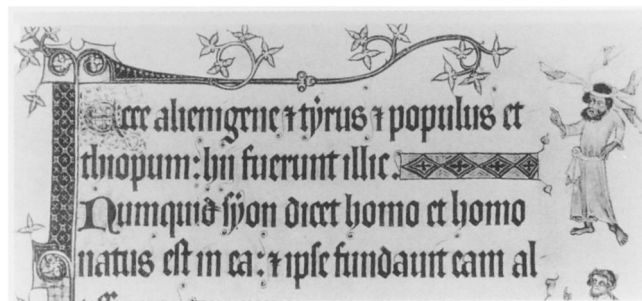 Ecce alienigene ⁊ tyrus ⁊ populus et
thiopum: hii fuerunt illic.
Numquid syon dicet homo et homo
natus est in ea: ⁊ ipse fundauit eam al